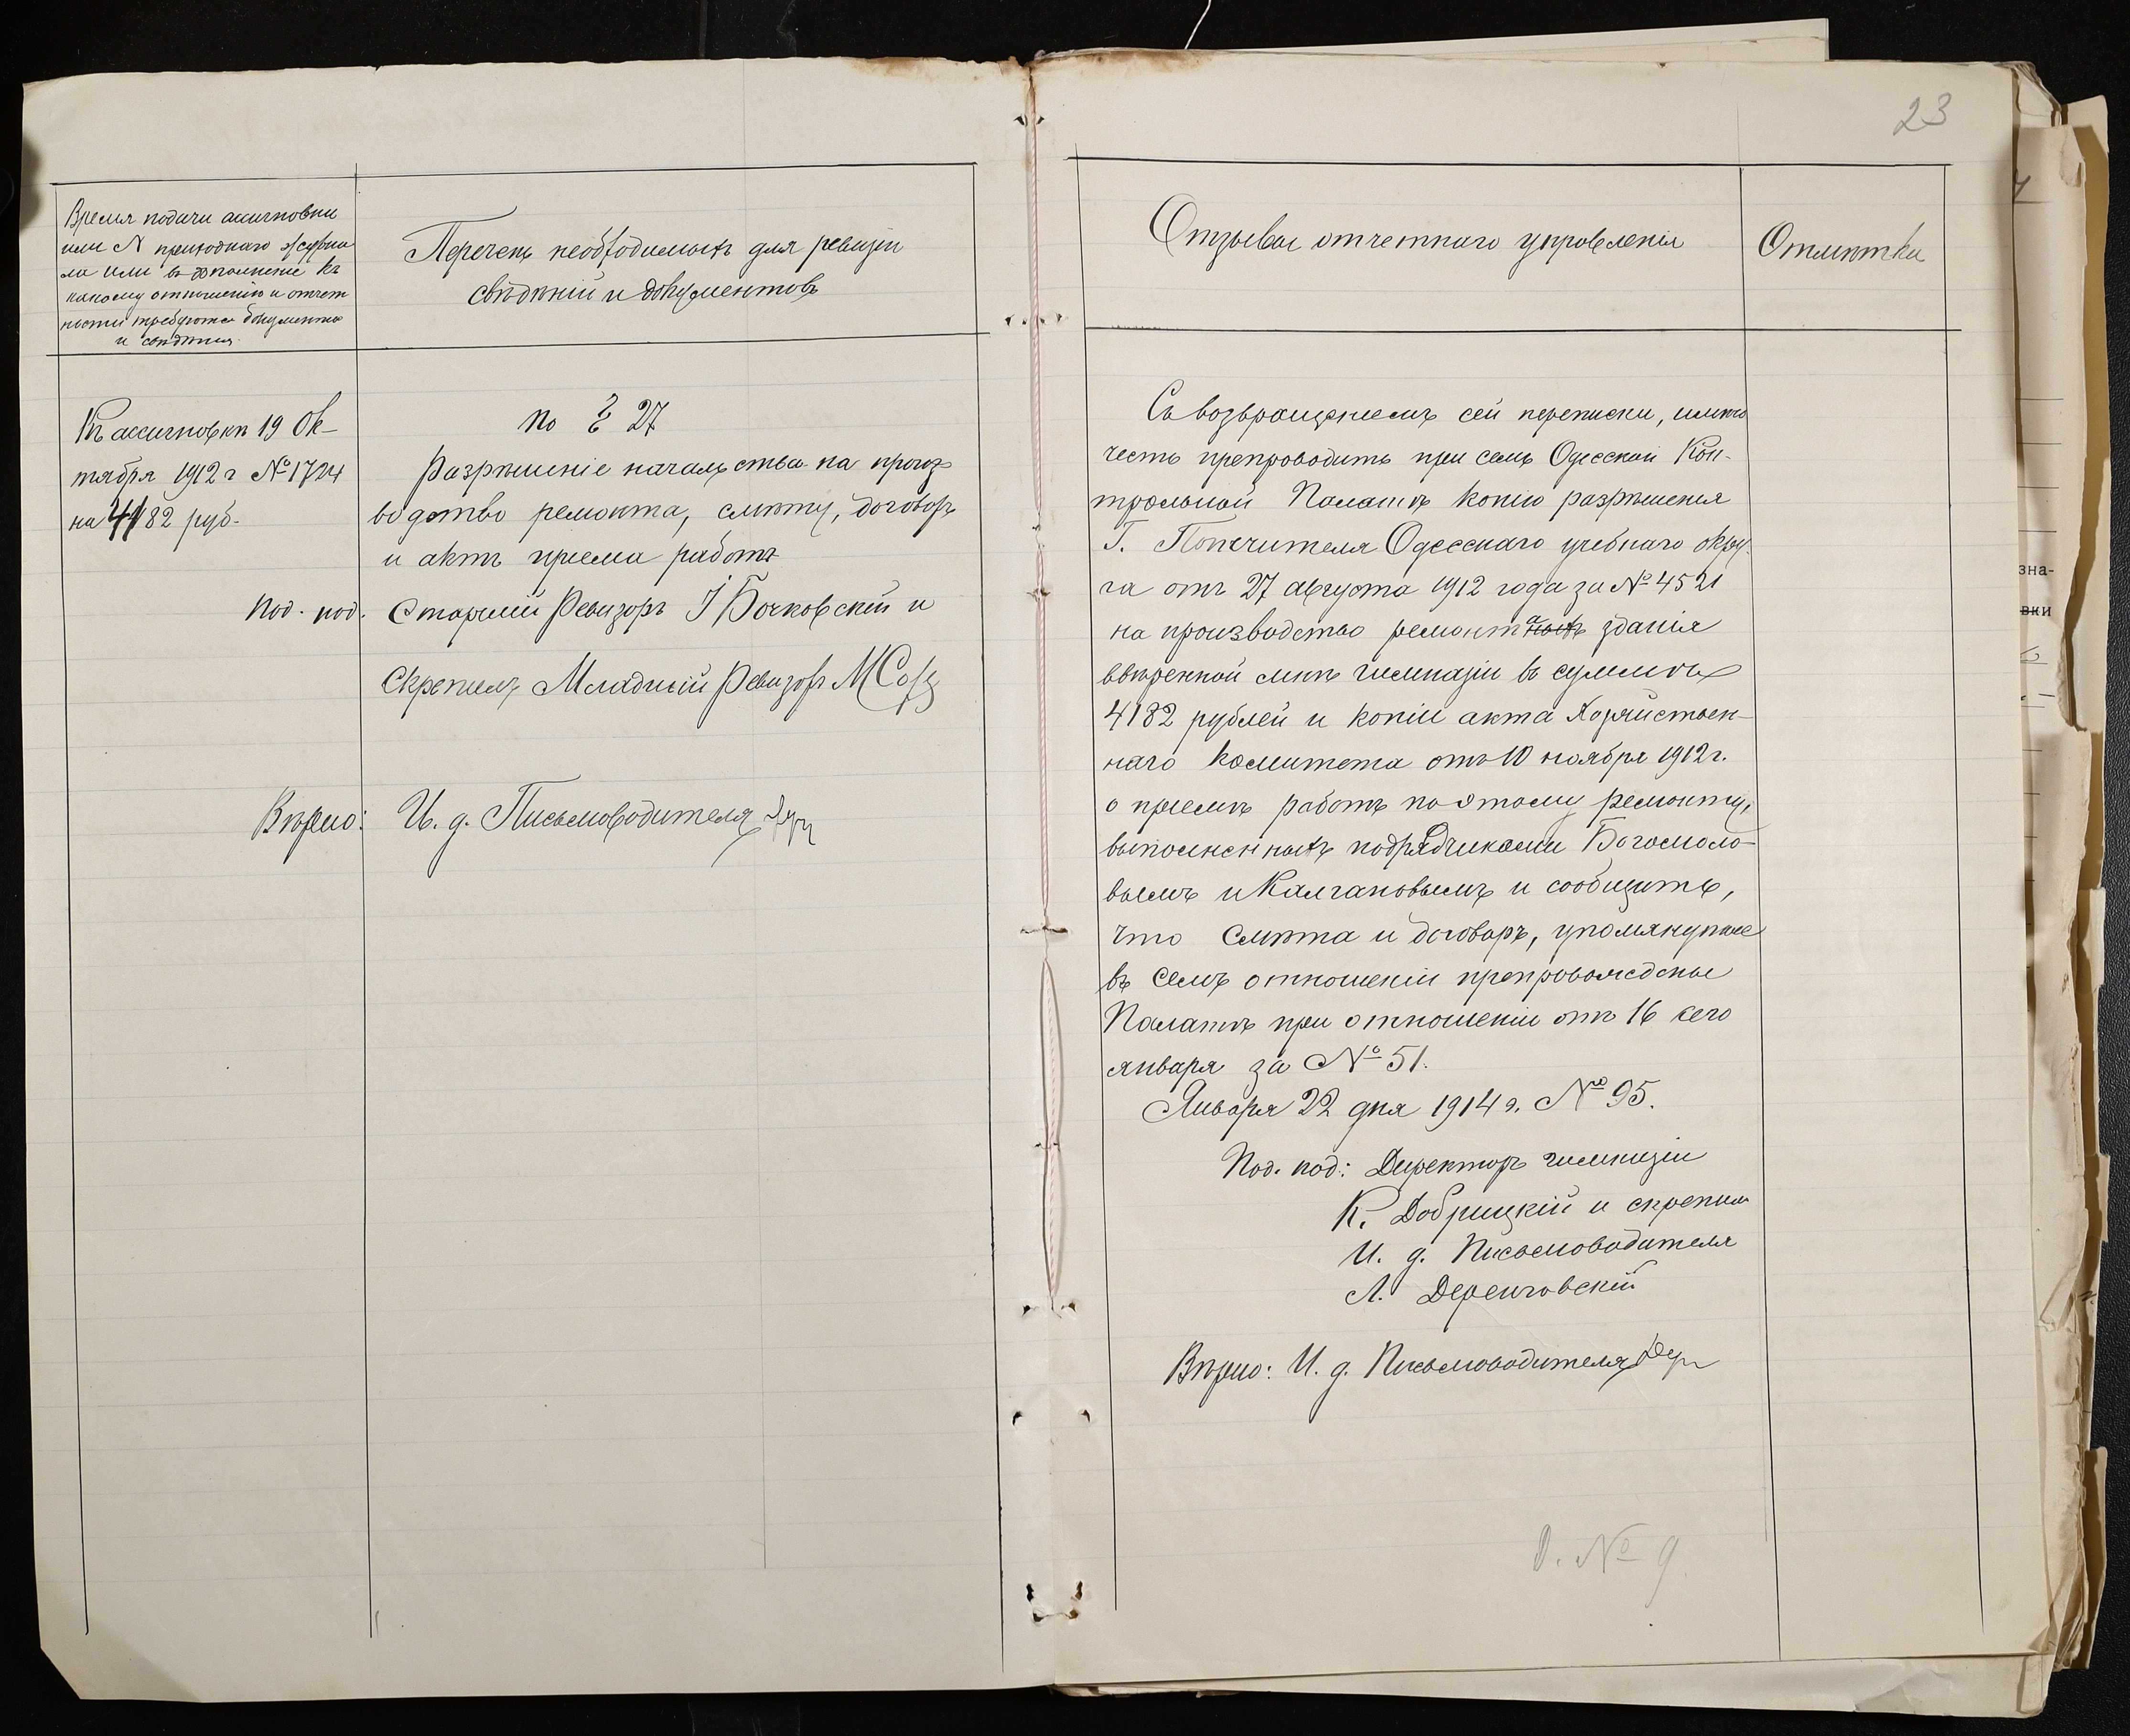 23
Время подачи ассигновки
или № приходнаго журна
ла или въ дополненіе къ
какому отношенію и отчет
ности требуются документы
и свѣдѣнія.
Перечень необходимыхъ для ревизіи
свѣдѣній и документовъ
Къ ассигновкѣ 19 Ок-
тября 1912 г № 1724
на 4182 руб.
по § 27
Разрѣшеніе начальства на произ-
водство ремонта, смѣту, договоръ
и актъ пріема работъ
Под. под. Старшій Ревизоръ І Бочковскій и
Скрепилъ Младшій Ревизоръ М
Вѣрно: И. д. Письмоводителя
Отзывы отчетнаго управленія
Отмѣтки
Съ возвращеніемъ сей переписки, имѣю
честь препроводить при семъ Одесской Кон-
трольной Палатѣ копію разрѣшенія
Г. Попечителя Одесскаго учебнаго окру-
га отъ 27 августа 1912 года за № 4521
на производство ремонта зданія
ввѣренной мнѣ гимназіи въ суммѣ
4182 рублей и копіи акта Хозяйствен-
наго Комитета отъ 10 ноября 1912 г.
о пріемѣ работъ по этому ремонту,
выполненныхъ подрядчиками Богомоло-
вымъ и Калгановымъ и сообщить,
что смѣта и договоръ, упомянутые
въ семъ отношеніи препровождены
Палатѣ при отношеніи отъ 16 сего
января за № 51.
Января 22 дня 1914 г. № 95.
Под. под: Директоръ гимназіи
К. Добрицкій и скрепилъ
И. д. Письмоводителя
Л. Деренговскій
Вѣрно: И. д. Письмоводителя Дер
О. № 9
зна-
вки